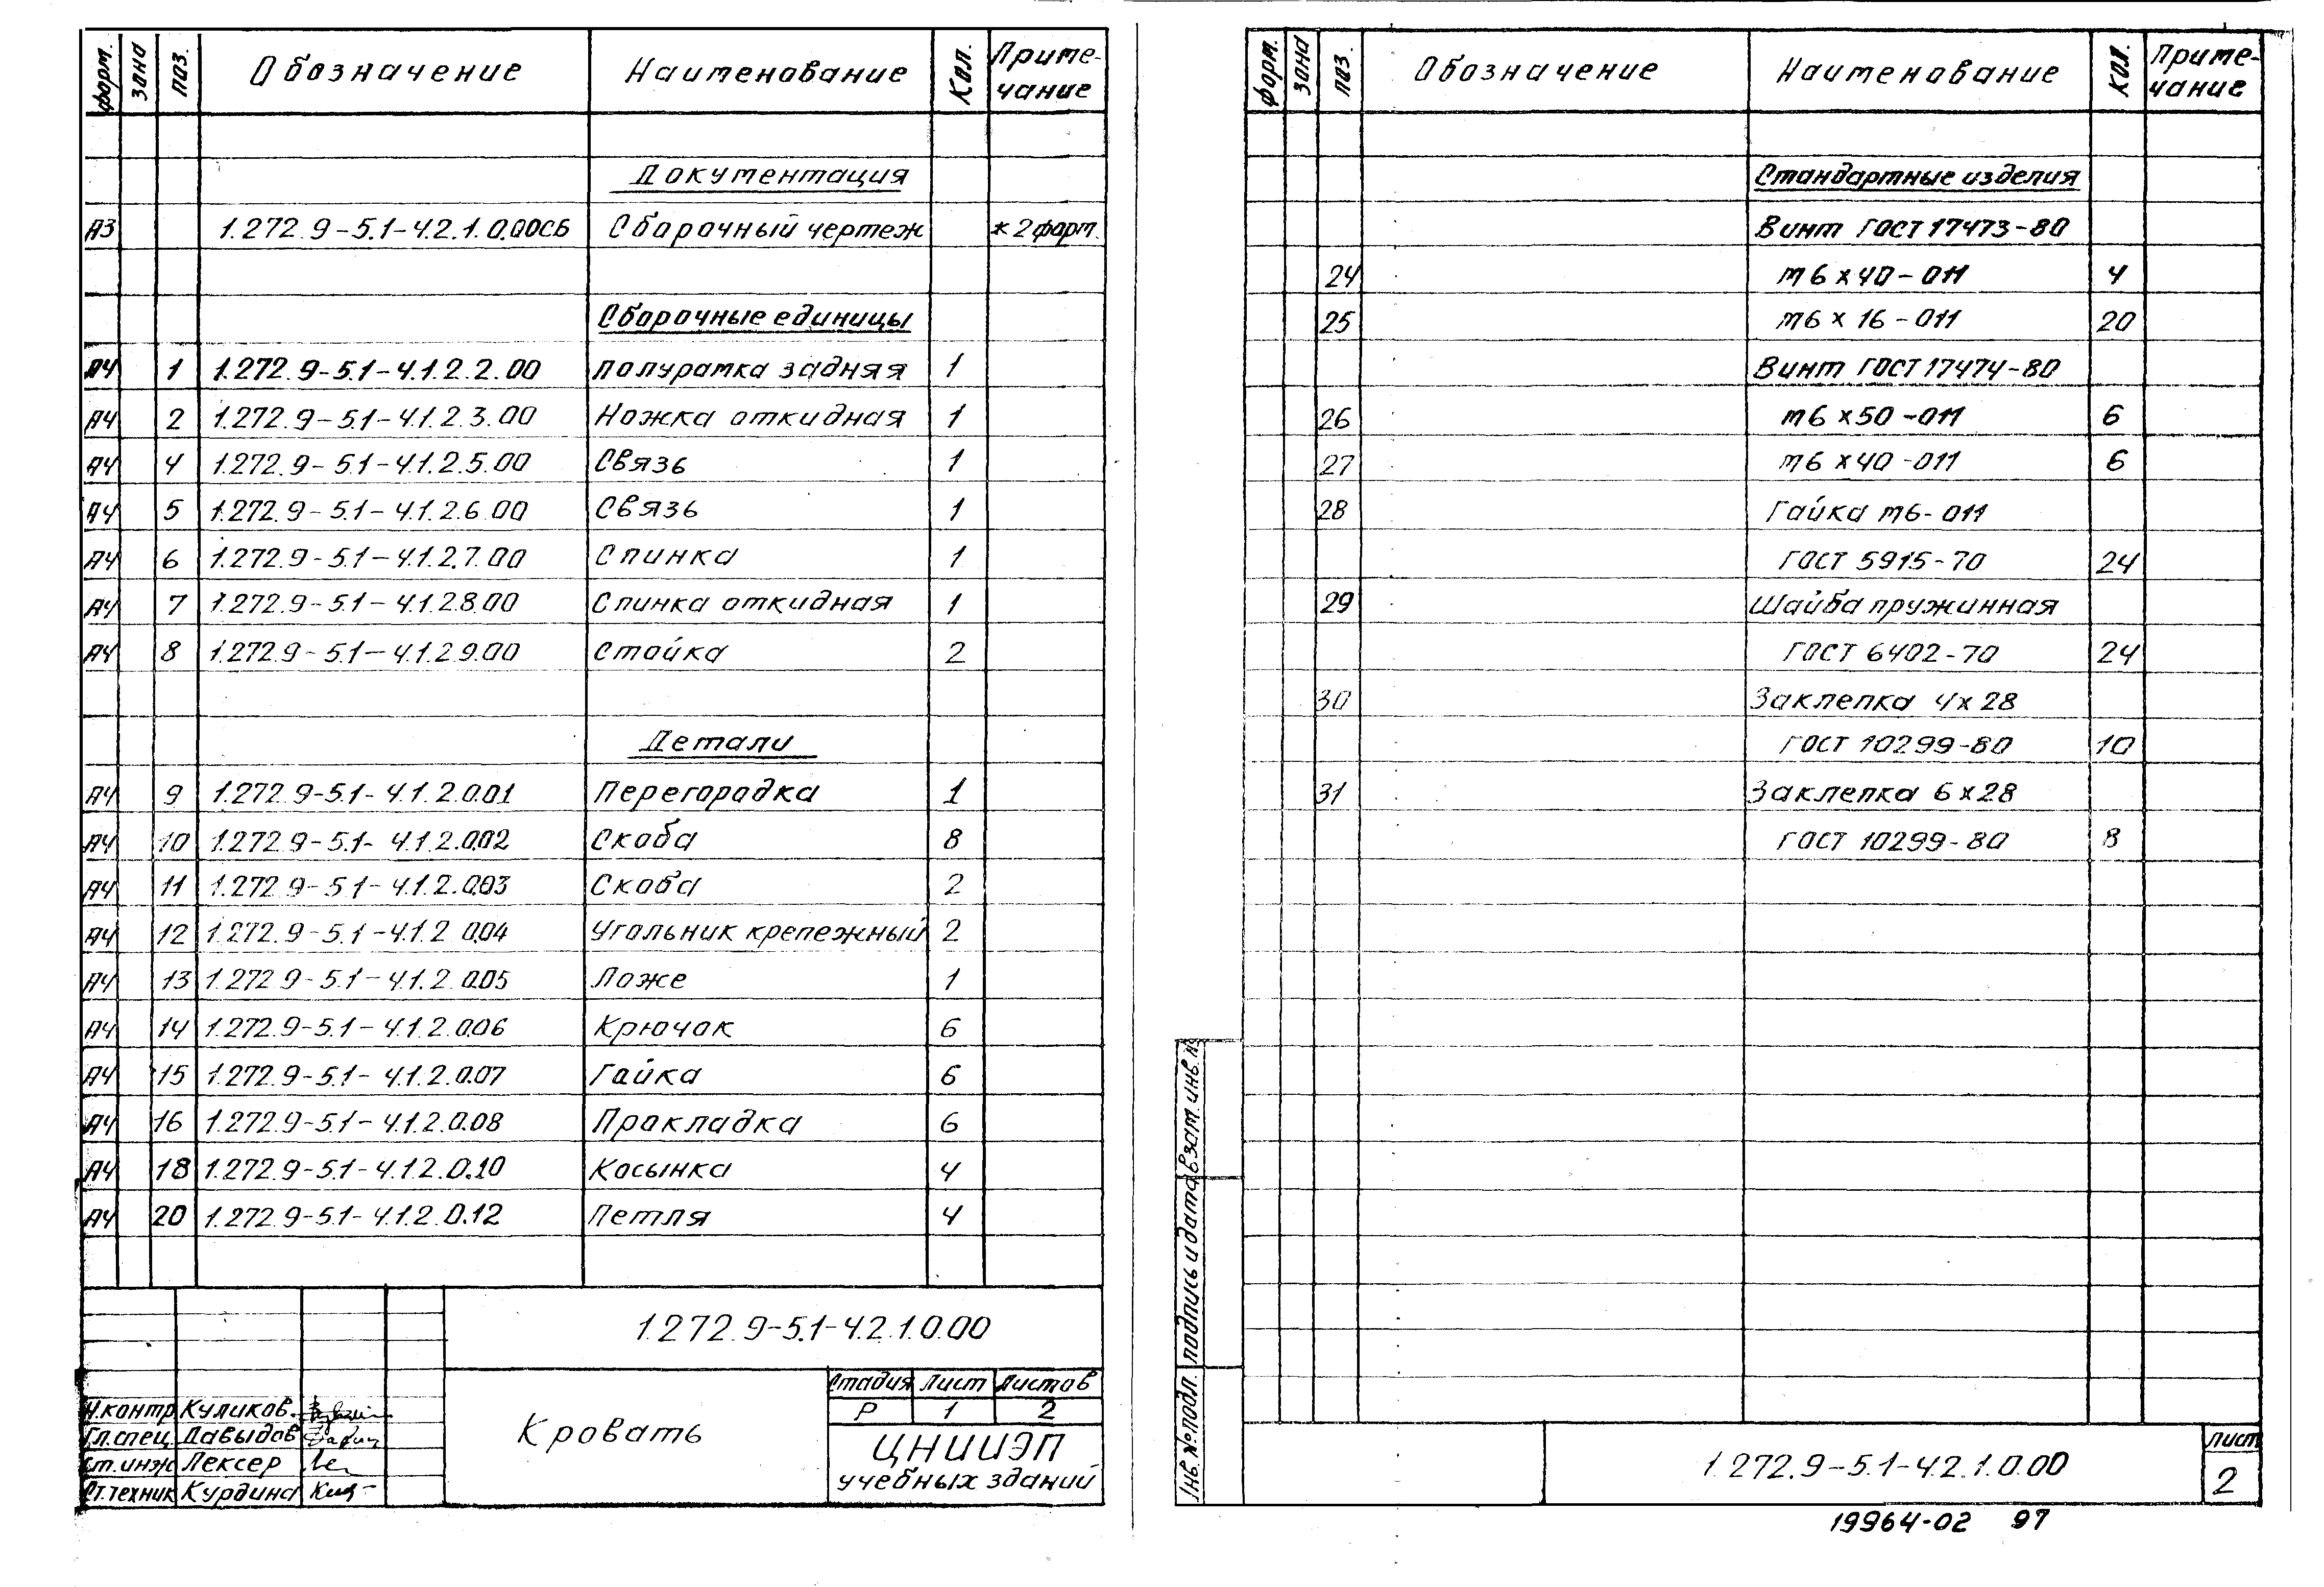 форм. зона поз. Обозначение Наименование Кол. Приме-
чание
Документация
А3 1.272.9-5.1-4.2.1.0.00СБ Сборочный чертеж *2форм.
Сборочные единицы
А4 1 1.272.9-5.1-4.1.2.2.00 Полурамка задняя 1
А4 2 1.272.9-5.1-4.1.2.3.00 Ножка откидная 1
А4 4 1.272.9-5.1-4.1.2.5.00 Связь 1
А4 5 1.272.9-5.1-4.1.2.6.00 Связь 1
А4 6 1.272.9-5.1-4.1.2.7.00 Спинка 1
А4 7 1.272.9-5.1-4.1.2.8.00 Спинка откидная 1
А4 8 1.272.9-5.1-4.1.2.9.00 Стойка 2
Детали
А4 9 1.272.9-5.1-4.1.2.0.01 Перегородка 1
А4 10 1.272.9-5.1-4.1.2.0.02 Скоба 8
А4 11 1.272.9-5.1-4.1.2.0.03 Скоба 2
А4 12 1.272.9-5.1-4.1.2.0.04 Угольник крепежный 2
А4 13 1.272.9-5.1-4.1.2.0.05 Ложе 1
А4 14 1.272.9-5.1-4.1.2.0.06 Крючок 6
А4 15 1.272.9-5.1-4.1.2.0.07 Гайка 6
А4 16 1.272.9-5.1-4.1.2.0.08 Прокладка 6
А4 18 1.272.9-5.1-4.1.2.0.10 Косынка 4
А4 20 1.272.9-5.1-4.1.2.0.12 Петля 4
1.272.9-5.1-4.2.1.0.00
Кровать
Стадия Лист Листов
Р 1 2
ЦНИИЭП
учебных зданий
Н.контр Куликов.
Гл.спец. Давыдов
Ст.инж Лексер
Ст.техник Курдина
форм. зона поз. Обозначение Наименование Кол. Приме-
чание
Стандартные изделия
Винт ГОСТ 17473-80
24 м6х40-011 4
25 м6х16-011 20
Винт ГОСТ 17474-80
26 м6х50-011 6
27 м6х40-011 6
28 Гайка м6-011
ГОСТ 5915-70 24
29 Шайба пружинная
ГОСТ 6402-70 24
30 Заклепка 4х28
ГОСТ 10299-80 10
31 Заклепка 6х28
ГОСТ 10299-80 8
Инв.№подл. Подпись и дата Взам.инв.№
1.272.9-5.1-4.2.1.0.00
Лист
2
19964-02 97